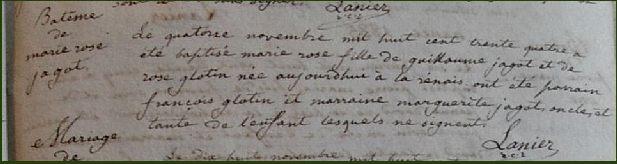 Lanier
v.c.r
Batême
de
marie rose
jagot.
Le quatorze novembre mil huit cent trente quatre a
été baptisé marie rose fille de guillaume jagot et de
rose glotin née aujourd'huie à la rénais ont été parrain
françois glotin et marraine marguerite jagot oncle, et
tante de l'enfant lesquels ne signent.
Lanier
v.c.r
Mariage
de
Le dix huit novembre mil huit